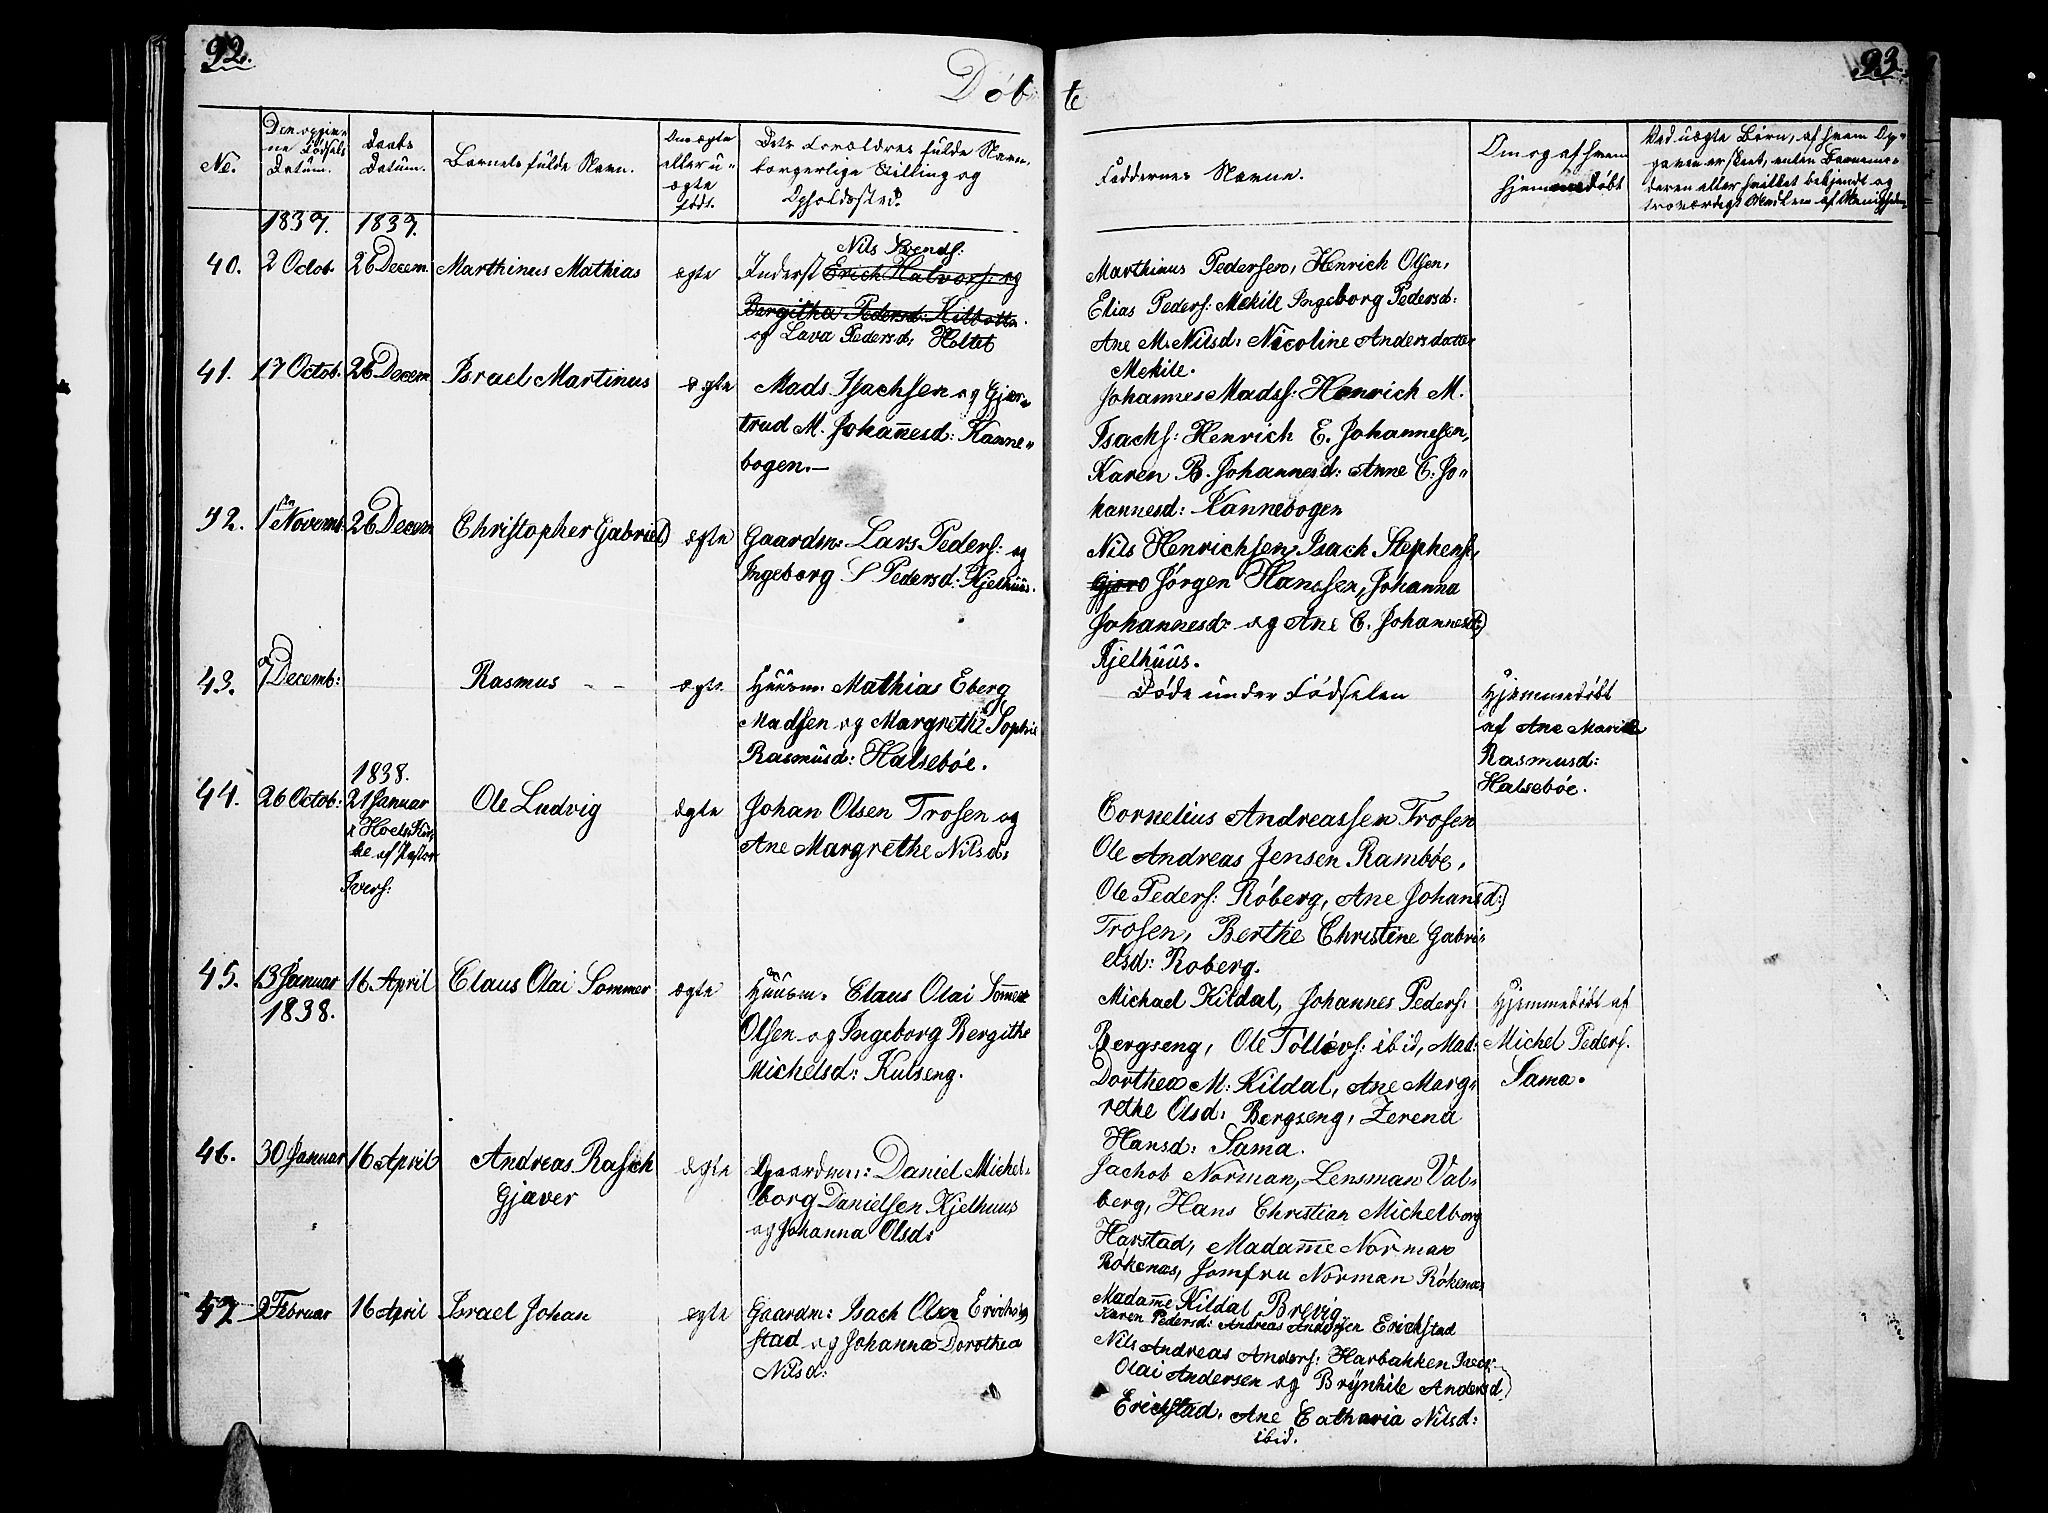 92.
Døb
No.
Den opgiv-
ne Fødsels
Datum.
Daabs
Datum.
Barnets fulde Navn.
Om ægte
eller u-
ægte
født.
Dets Forældres fulde Navn,
borgerlige Stilling og
Opholdssted.
1837.
1837.
40.
2 Octob.
26 Decem.
Marthinus Mathias
ægte
Nils Svends:
Inderst Erich Halvors: og
Bergitha Pedersd: Kilbotten
og Lava Pedersd: Holtet
41.
17 Octob.
26 Decem
Israel Martinus
ægte
Mads Isachsen og Gjær-
trud M. Johañesd: Kanne-
bogen.—
42.
1ste Novemb.
26 Decem
Christopher Gabriel
ægte
Gaardm: Lars Peders: og
Ingeborg S Pedersd: Kjelhuus.
43.
7 Decemb:
Rasmus - -
ægte
Huusm. Mathias Eberg
Madsen og Margrethe Sophie
Rasmusd: Halsebøe.
44.
26 Octob:
1838.
21 Januar
i Hoels Kir-
ke af Pastor
Ivers:
Ole Ludvig
ægte
Johan Olsen Trosen og
Ane Margrethe Nilsd:
45.
13 Januar
1838.
16 April
Claus Olai Sommer
ægte
Huusm. Claus Olai Sommer
Olsen og Ingeborg Bergithe
Michelsd: Kulseng.
46.
30 Januar
16 April
Andreas Rasch
Gjæver
ægte
Gaardm: Daniel Michel-
borg Danielsen Kjelhuus
og Johanna Olsd:
47
2 Februar
16 April
Israel Johan
ægte
Gaardm: Isach Olsen Erich-
stad og Johanna Dorothea
Nilsd:
93.
te
Faddernes Navne.
Om og af hvem
hjemmedøbt
Ved uægte Børn, af hvem Op-
gaven er skeet, enten Barnemo-
deren eller hvilket bekjendt og
troværdigt Medlem af Menigheden
Marthinus Pedersen, Henrich Olsen,
Elias Peders: Mekile Ingeborg Pedersd:
Ane M. Nilsd: Nicoline Andersdatter
Mekile.
Johannes Madss: Henrich M.
Isachs: Henrich E. Johannesen,
Karen B. Johannesd: Anne C. Jo-
hannesd: Kannebogen
Nils Henrichsen, Isach Stephens,
Jørgen Hanssen, Johanna
Johannesd: og Ane E. Johannesd
Kjelhuus.
Døde under Fødselen
Hjemmedøbt
af Ane Marie
Rasmusd:
Halsebøe.
Cornelius Andreassen Trosen
Ole Andreas Jensen Rambøe,
Ole Peders: Røberg, Ane Johansd:
Trosen, Berthe Christine Gabri-
elsd: Røberg.
Michael Kildal, Johannes Peders:
Bergseng, Ole Tollevs: ibid, Mad:
Dorthea M: Kildal, Ane Marg-
rethe Olsd: Bergseng, Zerena
Hansd: Sama.
Hjemmedøbt af
Michel Peders.
Sama.
Jachob Norman, Lensman Val-
berg, Hans Christian Michelborg
Harstad, Madam̃e Norman
Røkenæs, Jomfru Norman Røkenæs
Madam̃e Kildal Brevig
Karen Pedersd: Andreas Andersen Erichstad
Nils Andreas Anders: Harbakken Peder
Olai Andersen og Brynhile Andersd
Erichstad. Ane Catharia Nilsd:
ibid.